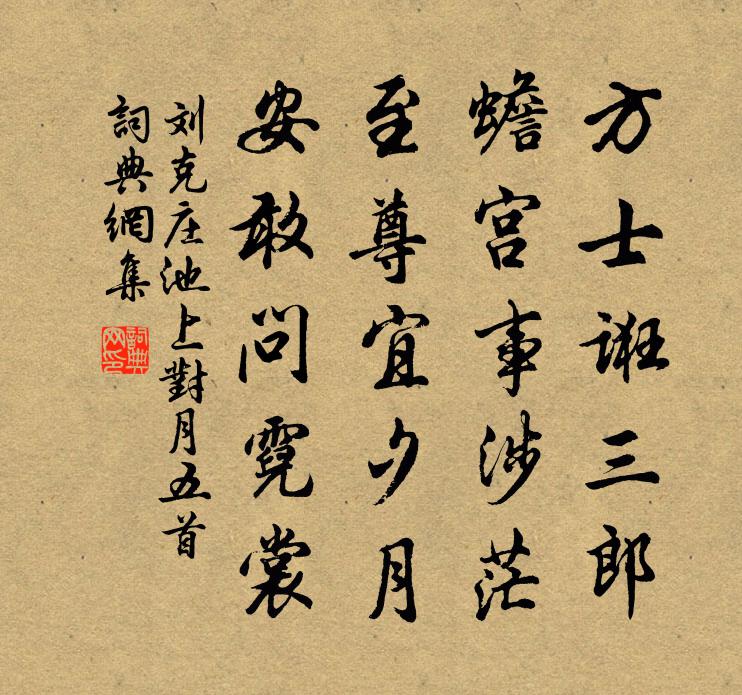 方士诳三郎
蟾宫事涉茫
至尊宜夕月
安敢问霓裳
刘克庄池上對月五首
詞典網集
詞典网印